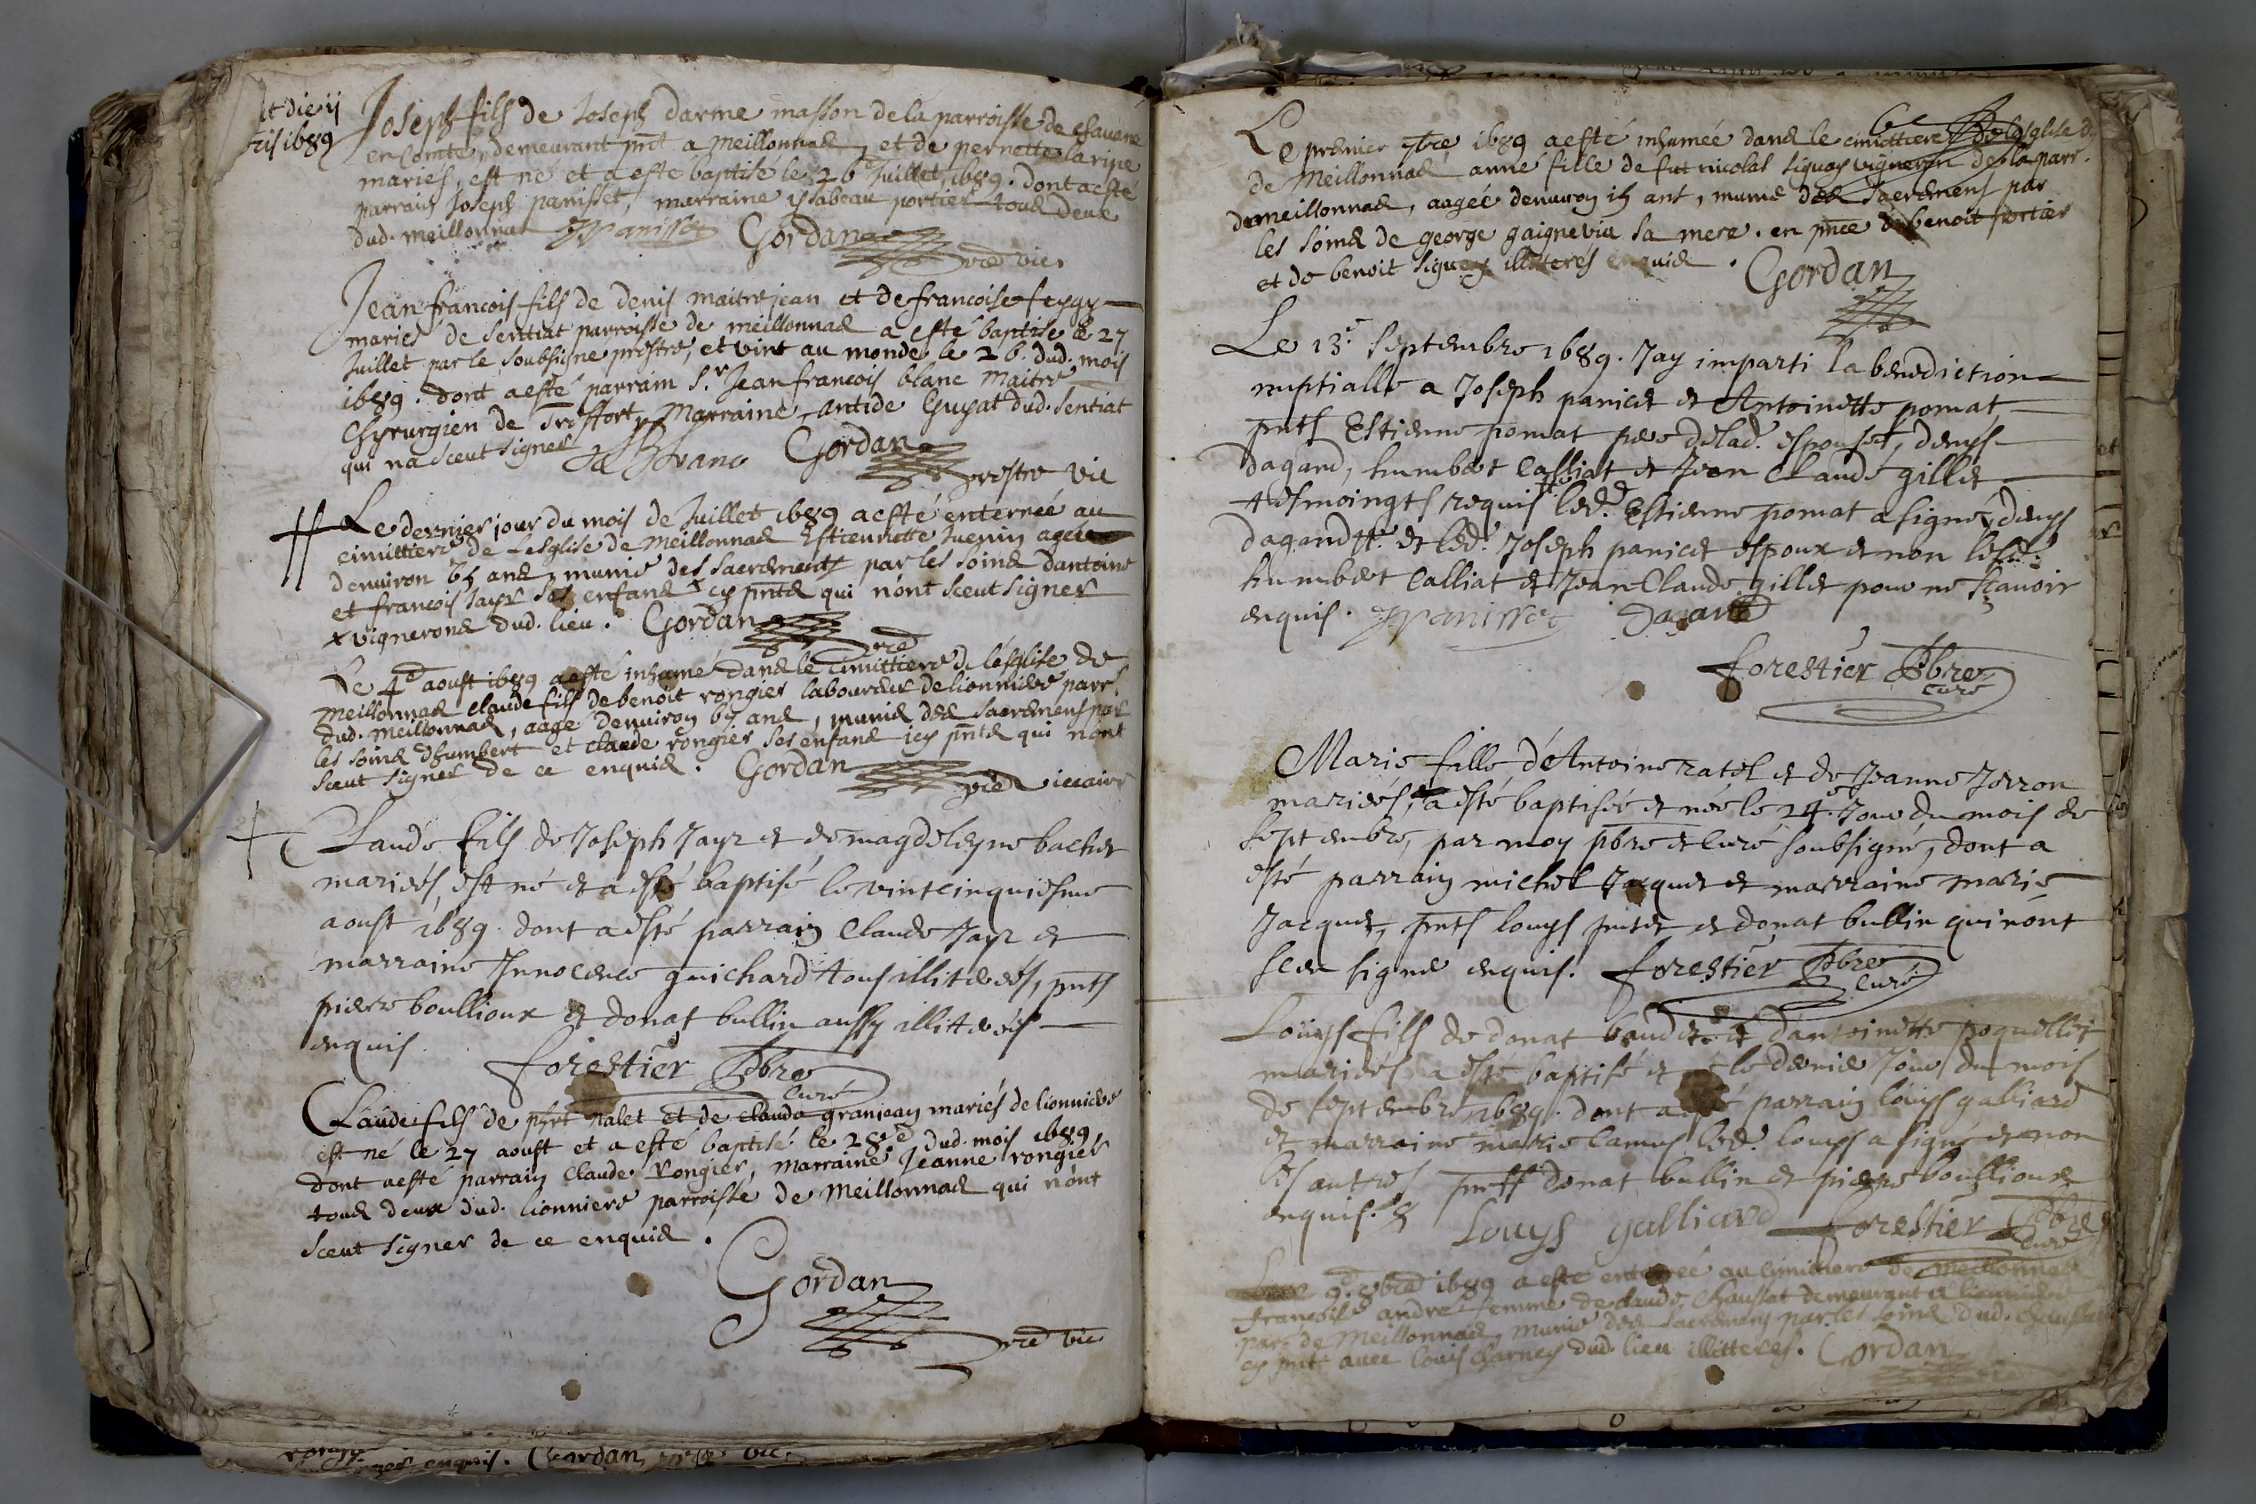 Joseph fils de Joseph darme masson de la parroisse de
en Comté, demeurant pnt a Meillonnas, et de pernette laripe
mariés, est né et a esté baptisé le 26 Juillet 1689. dont a esté
parrain Joseph panisset, marraine ysabeau portier tous deux
dud. meillonnas JPanisset Gordan
pre vic.
Jean francois fils de denis maitrejean et de francoise
mariés de Sentiat parroisse de meillonnas a esté baptisé le 27
Juillet par le soubsigné prestre, et vint au monde le 26. dud. mois
1689. dont a esté parrain Sr. Jean francois blanc Maitre
Chyrurgien de Treffort, Marraine antide Guyat dud. Sentiat
qui na sceut signer Blanc Gordan
prestre vic
Le dernier jour du mois de Juillet 1689 a esté enterrée au
cimittiere de Lesglise de Meillonnas Estiennette Juenin agée
denviron 65 ans, munie des sacrements par les soins dantoine
et francois Jayr ses enfans cy pnts qui n'ont sceut signer
vignerons dud. lieu. Gordan
pre
Le 4e aoust 1689 a esté inhumé dans le cimittiere de lésglise de
Meillonnas claude fils de benoit rongier laboureur de lionniere parr.
dud. meillonnas, aagé denviron 65 ans, munis des sacremens par
les soins dhumbert et claude rongier ses enfans icy pnts qui n'ont
sceut signer de ce enquis. Gordan
pre viccaire
Claude fils de Joseph Jayr et de magdeleyne bachet
mariés, est né et a esté baptisé le vintcinquiesme
aoust 1689. dont a esté parrain Claude Jayr et
marraine Innocence guichard tous illiterés, pnts
pierre boullioux et donat bullin aussy illiterés
enquis. forestier Pbre
curé
Claude fils de pyrt ralet et de clauda granjean mariés de lionniere
est né le 27 aoust et a esté baptisé le 28e dud. mois 1689
dont a esté parrain Claude rongier, marraine Jeanne rongier
tous deux dud. lionniere parroisse de Meillonnas qui n'ont
sceut signer de ce enquis.
Gordan
pre vic
Le premier 7bre 1689 a esté inhumée dans le cimittiere de lesglise de
de Meillonnas anne fille de fut nicolas siguay vigneron de la parr.
de meillonnas, aagée denviron 15 ans, munie des sacremens par
les soins de george gaignevin sa mere. en pnce de benoit portier
et de benoit siguay illiterés enquis. Gordan
Le 13e. septembre 1689. Jay imparti la benediction
nuptialle a Joseph panicet et Antoinette pomat
pnts Estienne pomat pere de lad. espouse, denys
dagand, humbert Calliat et Jean Claude gillet
tesmoingts requis led. Estienne pomat a signé, denys
dagand et led. Joseph panicet espoux et non lesd.
humbert Calliat et Jean Claude gillet pour ne scavoir
enquis. JPanisset Dagand
forestier Pbre
curé
Marie fille d'Antoine ratel et de Jeanne Jorron
mariés, a esté baptisée et née le 24e. Jour du mois de
septembre, par moy pbre et curé soubsigné, dont a
esté parrain michel Jacquet et marraine marie
Jacquet, pnts louys putet et donat bullin qui n'ont
sceu signer enquis. forestier Pbre
curé
Louys fils de donat baudet et d'antoinette poquellet
mariés a esté baptisé et né le dernier Jour du mois
de septembre 1689. dont a esté parrain louys galliard
et marraine marie camus led. louys a signé et non
les autres pnts donat bullin et pierre boullioux
enquis. Louys galliard forestier Pbre
curé
9e. 8bre 1689 a esté enterrée au cimittiere de Meillonnas
francoise andre femme de claude Chaussat demeurant a lionniere
parr. de Meillonnas, munie des sacremens par les soins dud. chaussat
cy pnt avec louis charnay dud. lieu illitteres. Gordan
enquis. Gordan pre. vic.